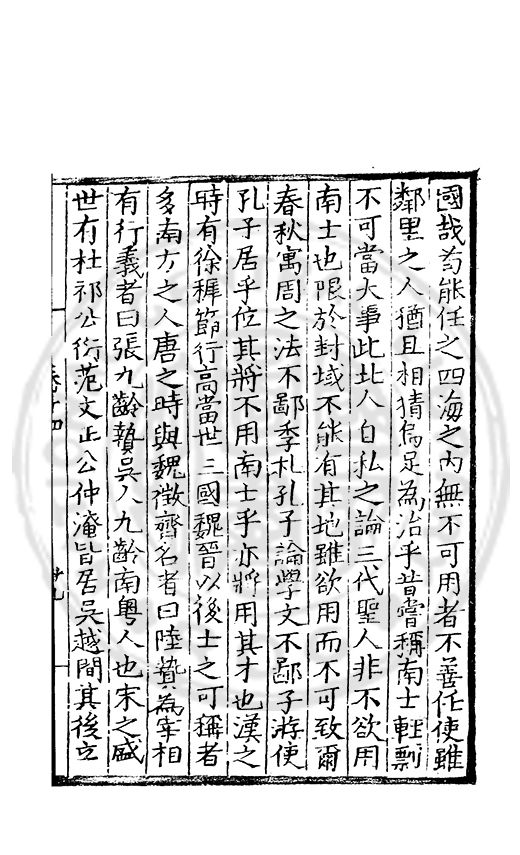 國哉茍能任之四海之內無不可用者不善任使雖
鄰里之人猶且相猜烏足為治乎昔嘗稱南士輕剽
不可當大事此北人自私之論三代聖人非不欲用
南士也限於封域不能有其地雖欲用而不可致爾
春秋寓周之法不鄙季札孔子論學文不鄙子游使
孔子居乎位其將不用南士乎亦將用其才也漢之
時有徐穉節行高當世三國魏晉以後士之可稱者
多南方之人唐之時與魏徵齊名者曰陸贄為宰相
有行義者曰張九齡贄吳人九齡南粵人也宋之盛
世有杜祁公衍范文正公仲淹皆居吳越間其後立
卷十四